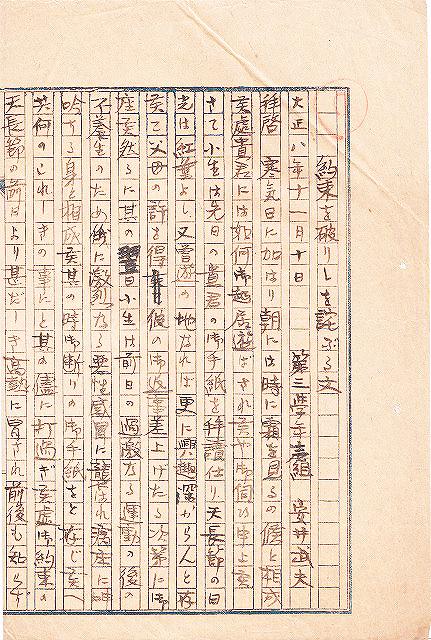 約束を破りしを詫ぶる文
大正八年十一月十日 第三學年壹組 安井武夫
拝啓 寒氣日に加はり朝には時に霜を見るの候と相成
候處貴君には如何御起居遊ばされ候や御伺ひ申上候
さて小生は先日の貴君の御手紙を拜讀仕り天長節の日
光は紅葉よし又曽遊の地なれば更に興趣深からんと存
候て父母の許を得 彼の御返事差上げたる次第に御
座候然るに其の翌日小生は前日の過激なる運動の後の
不養生のため俄に激烈なる悪性感冒に襲はれ病床に呻
吟する身と相成候其の時御断りの御手紙をと存じ候へ
共何のこれしきの事にと其の儘に打過ぎ候處御約束の
天長節の前日より甚だしき高熱に冒され前後も知らず